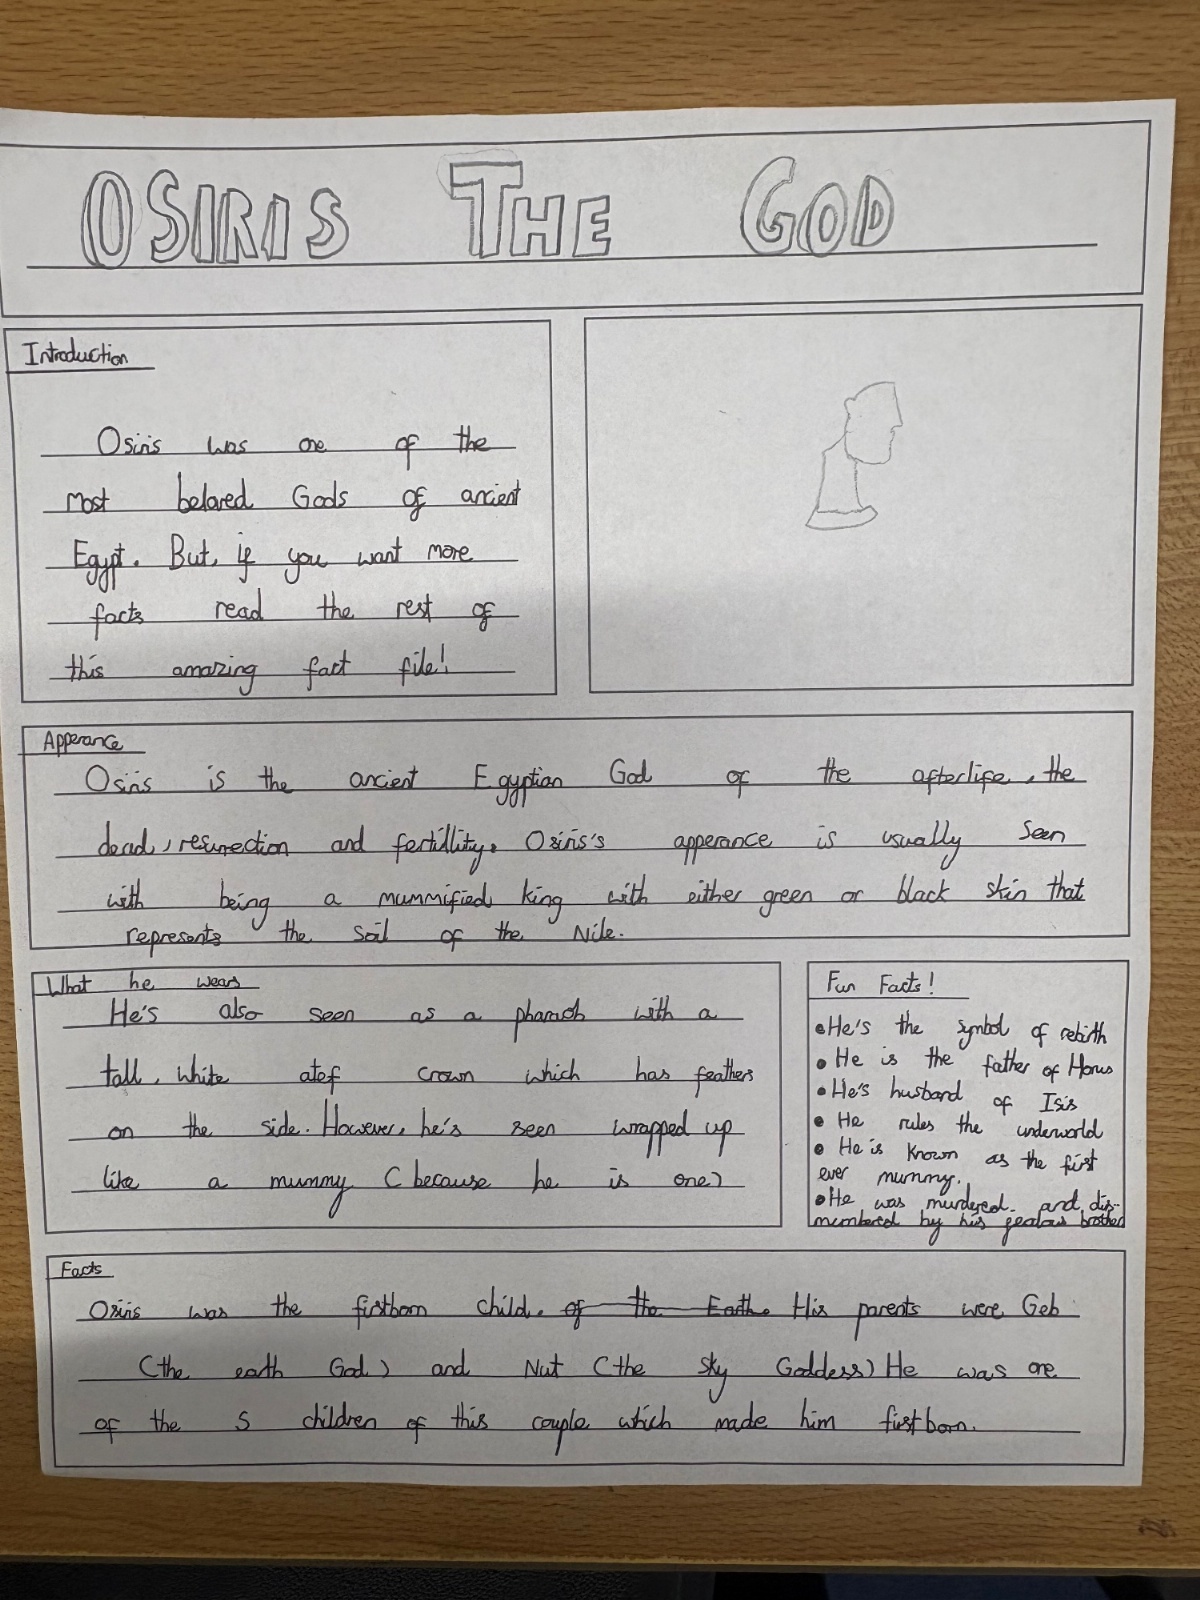 OSIRIS THE GOD
Introduction
Osiris was one of the
most beloved Gods of ancient
Egypt. But, if you want more
facts read the rest of
this amazing fact file!
Apperance
Osiris is the ancient Egyptian God of the afterlife, the
dead, resurrection and fertillity. Osiris's apperance is usually seen
with being a mummified king with either green or black skin that
represents the soil of the Nile.
What he wears
He's also seen as a pharaoh with a
tall, white atef crown which has feathers
on the side. However, he's seen wrapped up
like a mummy (because he is one)
Fun Facts!
•He's the symbol of rebirth
•He is the father of Horus
•He's husband of Isis
•He rules the underworld
•He is known as the first
ever mummy.
•He was murdered and dis-
membered by his jealous brother
Facts
Osiris was the firstborn child. of the Earth. His parents were Geb
(the earth God) and Nut (the sky Goddess) He was one
of the 5 children of this couple which made him firstborn.